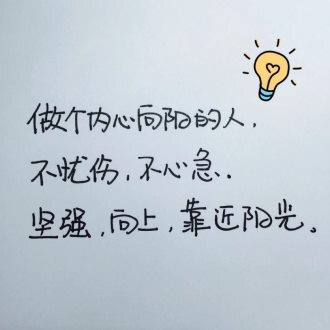 做个内心向阳的人,
不忧伤,不心急.
坚强,向上,靠近阳光。